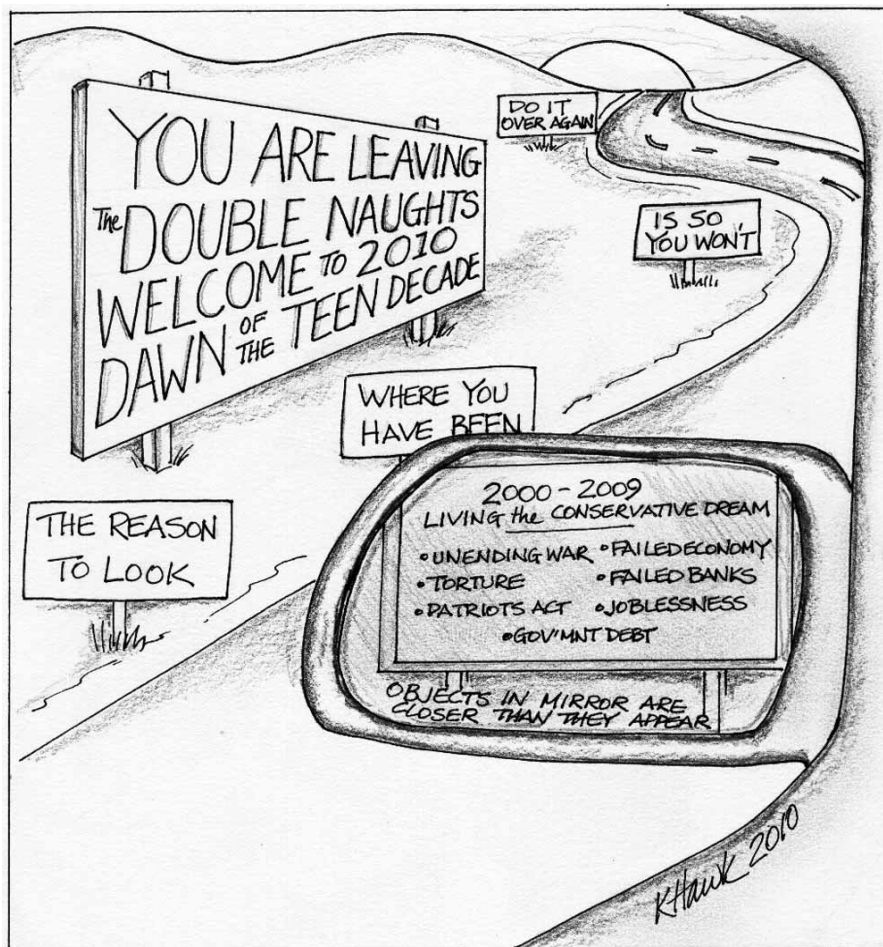 YOU ARE LEAVING
The DOUBLE NAUGHTS
WELCOME TO 2010
DAWN OF THE TEEN DECADE
THE REASON
TO LOOK
WHERE YOU
HAVE BEEN
IS SO
YOU WON'T
DO IT
OVER AGAIN
2000-2009
LIVING the CONSERVATIVE DREAM
•UNENDING WAR •FAILED ECONOMY
•TORTURE •FAILED BANKS
•PATRIOTS ACT •JOBLESSNESS
•GOV'MNT DEBT
OBJECTS IN MIRROR ARE
CLOSER THAN THEY APPEAR
KHawk 2010